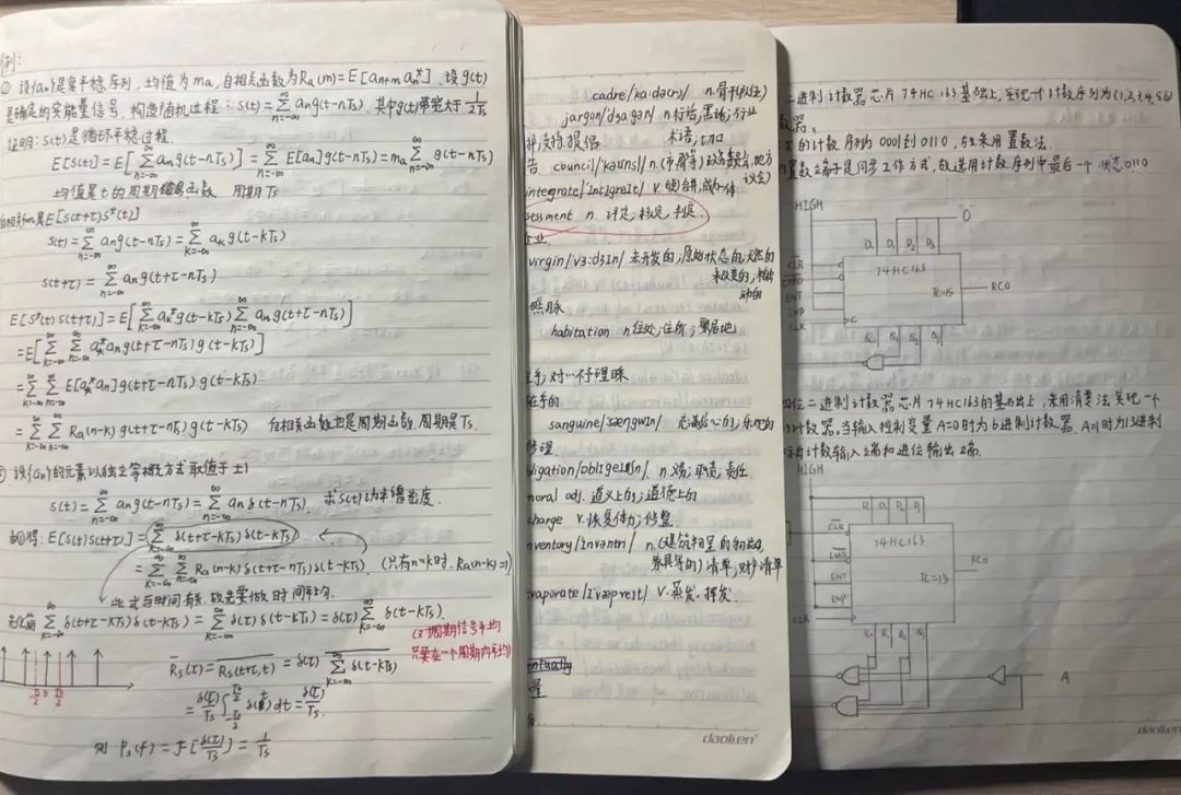 例:
① 设{an}是宽平稳序列,均值为ma,自相关函数为Ra(m)=E[an+m an*],设g(t)
是确定的实能量信号,构造随机过程:s(t)=∑(n=-∞→∞) an g(t-nTs),其中g(t)带宽大于 1/2Ts
证明:s(t)是循环平稳过程.
E[s(t)]=E[∑(n=-∞→∞) an g(t-nTs)]=∑(n=-∞→∞) E[an]g(t-nTs)=ma∑(n=-∞→∞) g(t-nTs)
均值是t的周期函数 周期Ts
自相关fun是E[s(t+τ)s*(t)]
s(t)=∑(n=-∞→∞) an g(t-nTs)=∑(k=-∞→∞) ak g(t-kTs)
s(t+τ)=∑(n=-∞→∞) an g(t+τ-nTs)
E[s*(t)s(t+τ)]=E[∑(k=-∞→∞) ak* g(t-kTs)∑(n=-∞→∞) an g(t+τ-nTs)]
=E[∑(k=-∞→∞)∑(n=-∞→∞) ak* an g(t+τ-nTs)g(t-kTs)]
=∑(k=-∞→∞)∑(n=-∞→∞) E[ak* an]g(t+τ-nTs)g(t-kTs)
=∑(k=-∞→∞)∑(n=-∞→∞) Ra(n-k)g(t+τ-nTs)g(t-kTs) 自相关函数也是周期函数,周期是Ts
设{an}的元素以独立等概方式取值于±1
s(t)=∑(n=-∞→∞) an g(t-nTs)=∑(n=-∞→∞) an δ(t-nTs),求s(t)功率谱密度.
E[s(t)s(t+τ)]=∑(k=-∞→∞) δ(t+τ-kTs)δ(t-kTs)
=∑(k=-∞→∞)∑(n=-∞→∞) Ra(n-k)δ(t+τ-kTs)δ(t-kTs) (只有n=k时,Ra(n-k)=1)
此式与时间有关,故先要做时间平均.
∑(k=-∞→∞) δ(t+τ-kTs)δ(t-kTs)=∑(k=-∞→∞) δ(τ)δ(t-kTs)=δ(τ)∑(k=-∞→∞) δ(t-kTs).
(对周期信号平均
只要在一个周期内平均)
Rs(τ)=Rs(t+τ,t)=δ(τ)∑(k=-∞→∞) δ(t-kTs)
=δ(τ)/Ts ∫(-Ts/2→Ts/2) δ(t)dt=δ(τ)/Ts
0
则 Ps(f)=F[δ(τ)/Ts]=1/Ts
cadre/ n.骨干(队伍)
jargon/ n.行话;黑话;行业
术语;切口
council/'kaunsl/ n.(市、郡等)政务委员会,地方
议会)
integrate/ v.使合并,成为一体
sessment n. 评定;核定;判定.
virgin/v3:dʒIn/ 未开发的;原始状态的;天然的
habitation n.住处;住所;聚居地
sanguine/sæŋgwIn/ 充满信心的;乐观的
修理
ligation/ n. 义务;职责;责任
moral adj. 道义上的;道德上的
charge v.恢复体力;休整.
nventory/Invəntri/ n.(建筑物里的物品,
家具等的)清单;财产清单
vaporate/IvæpəreIt/ v.蒸发,挥发.
entually
daolien
二进制计数器芯片74HC163基础上,实现一个计数序列为(1,2,3,4,5,6)
数器。
的计数序列为 0001到0110,故采用置数法.
置数端子是同步工作方式,故选用计数序列中最后一个状态0110
HIGH
0
D₀ D₁ D₂ D₃
CLR
LOAD
ENT
ENP
CLK
C
74HC163
TC=15
RCO
Q₀ Q₁ Q₂ Q₃
四位二进制计数器芯片74HC163的基础上,采用清零法实现一个
计数器。当输入控制变量A=0时为6进制计数器,A=1时为13进制
标出计数输入端和进位输出端.
HIGH
D₀ D₁ D₂ D₃
CLR
LOAD
ENT
ENP
CLR
74HC163
TC=15
RCO
Q₀ Q₁ Q₂ Q₃
A
daolien